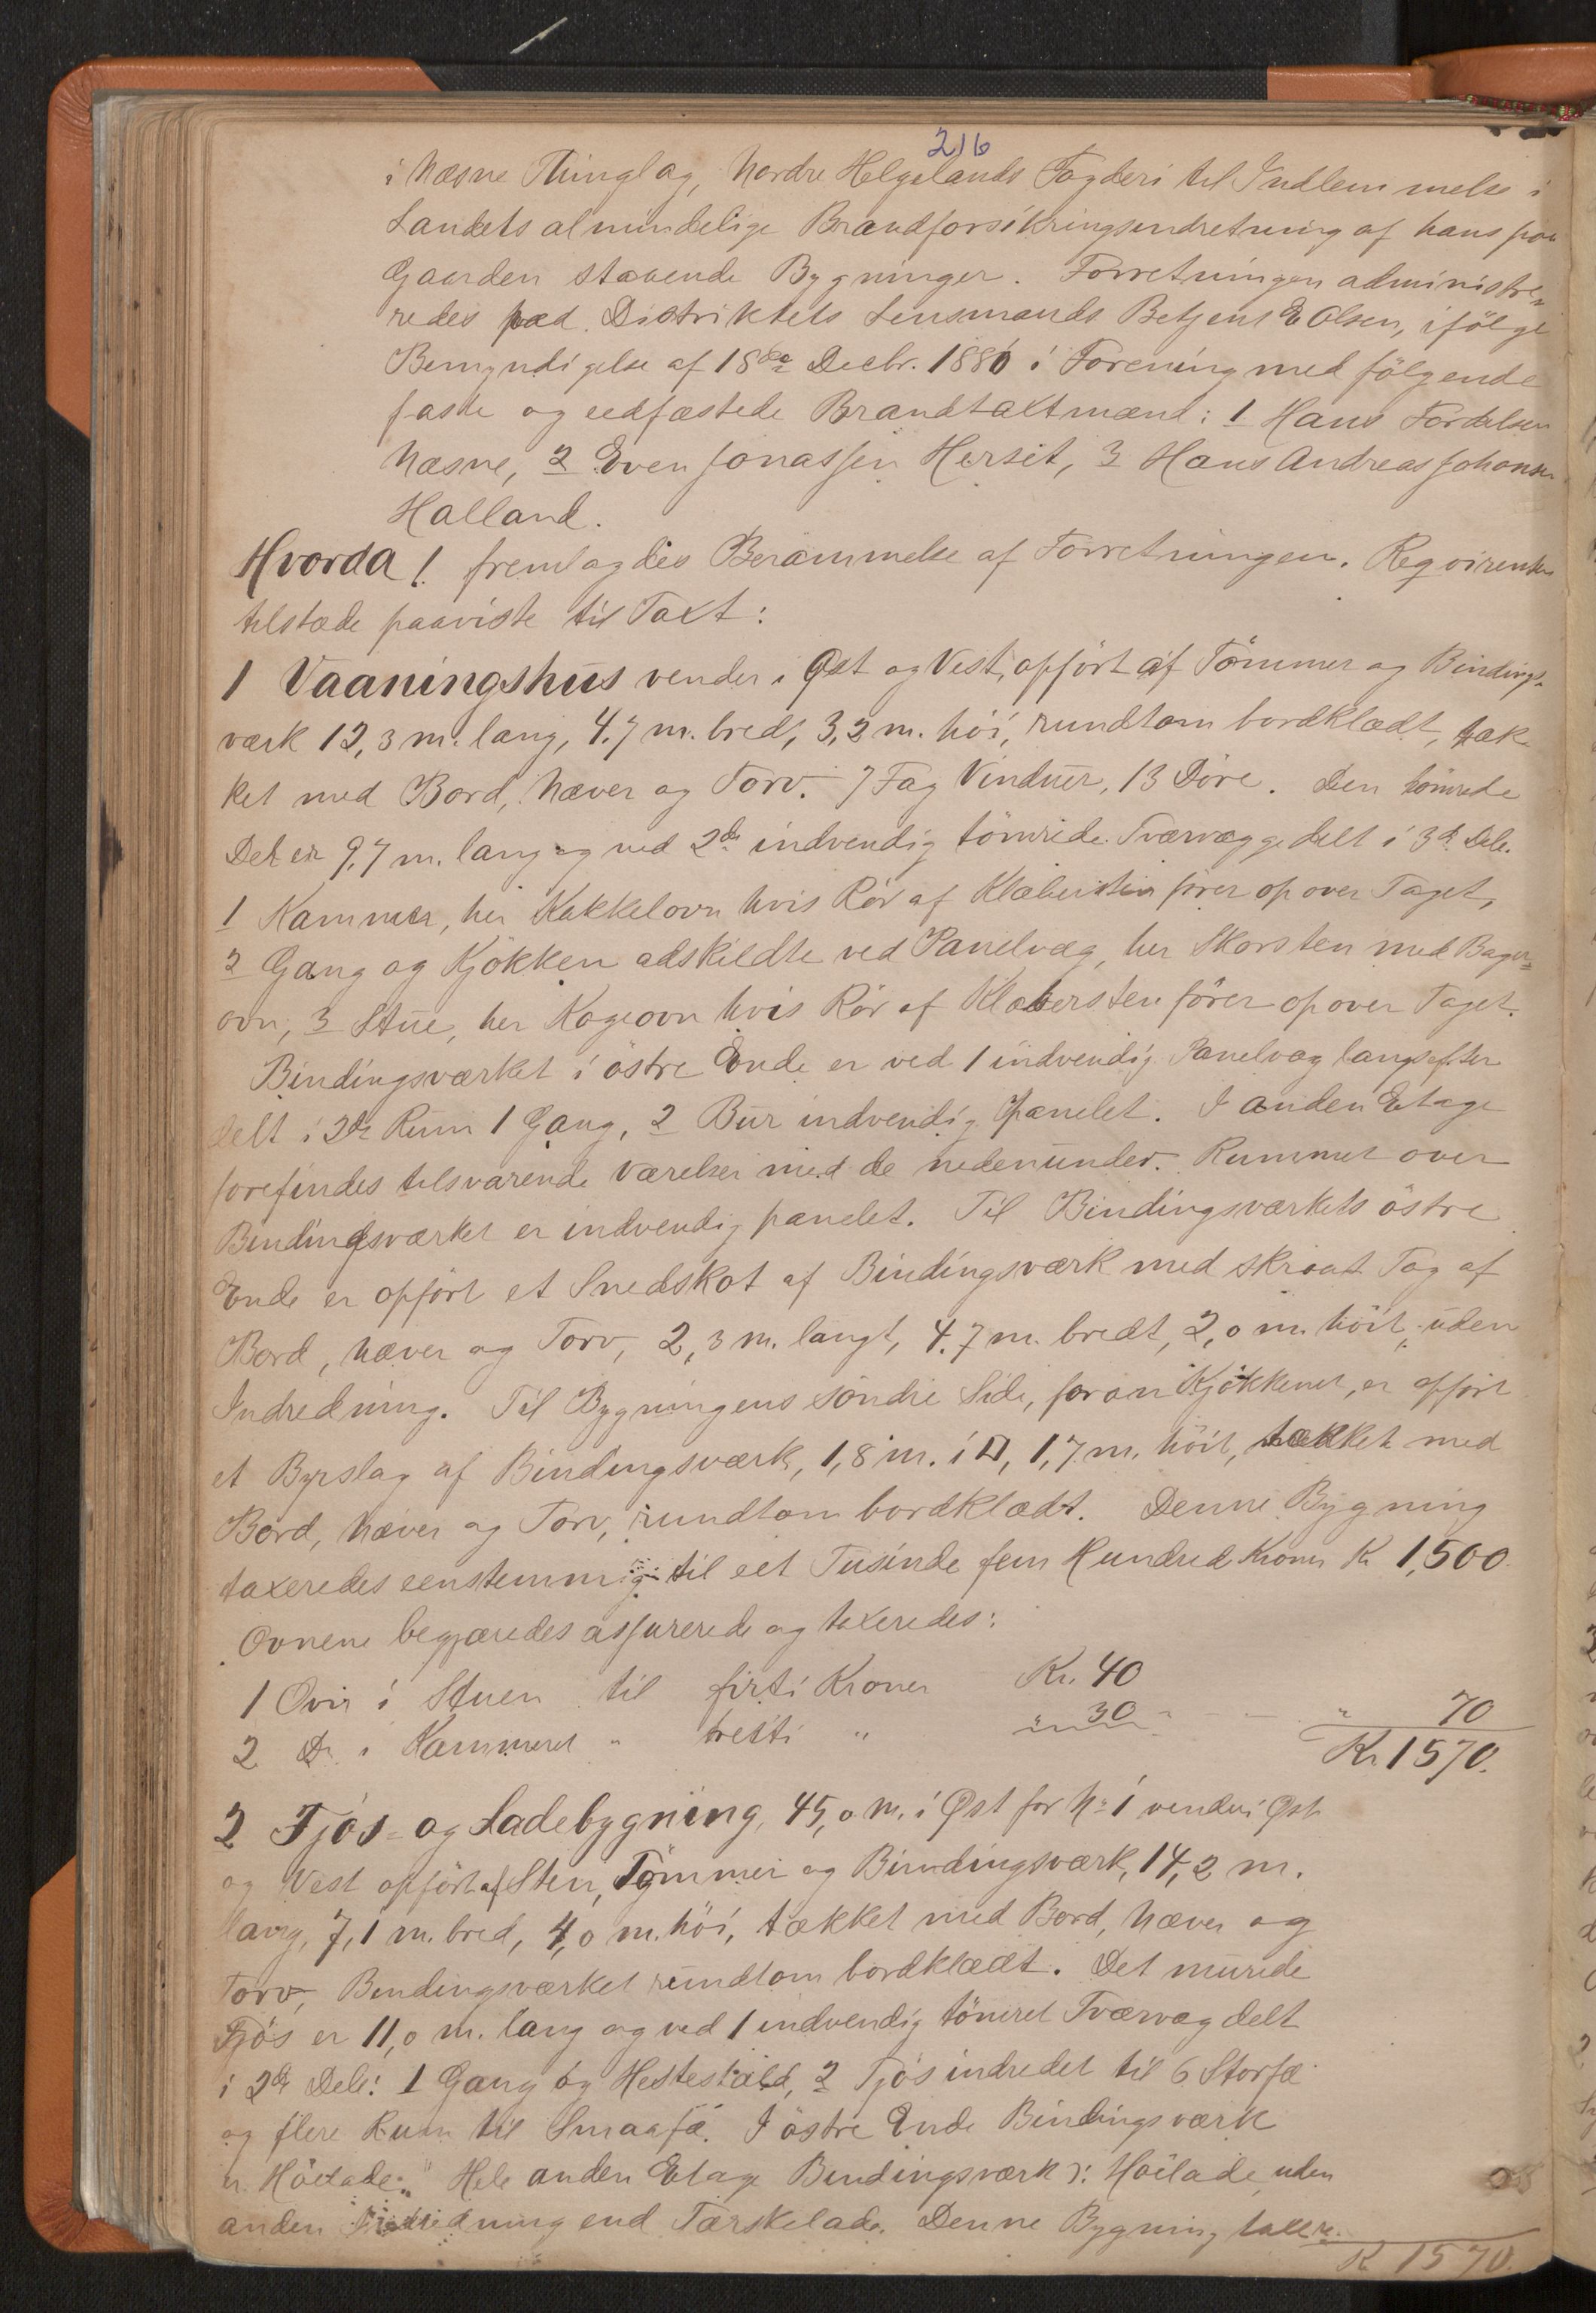 216
i Næsne Thinglag, Nordre Helgelands Fogderi til Indlemmelse i
Landets almindelige Brandforsikringsindretning af hans paa
Gaarden staaende Bygninger. Forretningen administre-
redes ved Distriktets Lensmands Betjent E Olsen, ifölge
Bemyndigelse af 18de Decbr. 1886 i Forening med fölgende
faste og eedfæstede Brandtaxtmænd: 1 Hans Fordelsen
Næsne, 2 Even Jonassen Herset, 3 Hans Andreas Johansen
Halland.
Hvorda 1. fremlagdes Berammelse af Forretningen. Reqvirenten
tilstæde paaviste til Taxt:
1 Vaaningshus vender i Øst og Vest, opfört af Tömmer og Bindings-
værk 12,3 m. lang, 4,7 m. bred, 3,2 m. höi, rundtom bordklædt, tæk
ket med Bord, Næver og Torv. 7 Fag Vinduer, 13 Döre. Den tömrede
Del er 9,7 m. lang og ved 2de indvendig tömrede Tværvægge delt i 3de Dele.
1 Kammer, her Kakkelovn hvis Rör af Klæbersten förer op over Taget,
2 Gang og Kjökken adskildte ved Panelvæg, her Skorsten med Bager-
ovn, 3 Stue, her Kogeovn hvis Rör af Klæbersten förer op over Taget.
Bindingsværket i östre Ende er ved 1 indvendig Panelvæg langsefter
delt i 2de Rum 1 Gang, 2 Bur indvendig panelet. I anden Etage
forefindes tilsvarende Værelser med de nedenunder. Rummet over
Bindingsværket er indvendig panelet. Til Bindingsværkets östre
Ende er opfört et Snedskot af Bindingsværk med skraat Tag af
Bord, Næver og Torv, 2,3 m. langt, 4,7 m. bredt, 2,0 m. höit, uden
Indredning. Til Bygningens söndre Side, foran Kjökkenet, er opfört
et Byrslag af Bindingsværk, 1,8 m. i □, 1,7 m. höit, tækket med
Bord, Næver og Torv, rundtom bordklædt. Denne Bygning
taxeredes eenstemmig til eet Tusinde fem Hundred Kroner Kr 1,500
Ovnene begjæredes assurerede og taxeredes:
1 Ovn i Stuen til firti Kroner Kr. 40
2 Do i Kammeret " tresti " " 30 - - " 70
Kr 1570.
2 Fjös- og Ladebygning, 45,0 m. i Øst for No 1 vender i Øst
og Vest opfört af Sten, Tömmer og Bindingsværk, 14,2 m.
lang, 7,1 m. bred, 4,0 m. höi, tækket med Bord, Næver og
Torv, Bindingsværket rundtom bordklædt. Det murede
Fjös er 11,0 m. lang og ved 1 indvendig tömret Tværvæg delt
i 2de Dele: 1 Gang og Hestestald, 2 Fjös indredet til 6 Storfæ
og flere Rum til Smaafæ. I östre Ende Bindingsværk
er Hölade. Hele anden Etage Bindingsværk ɔ: Höilade, uden
anden Indredning end Tærskelade. Denne Bygning taxere-
Kr 1570.